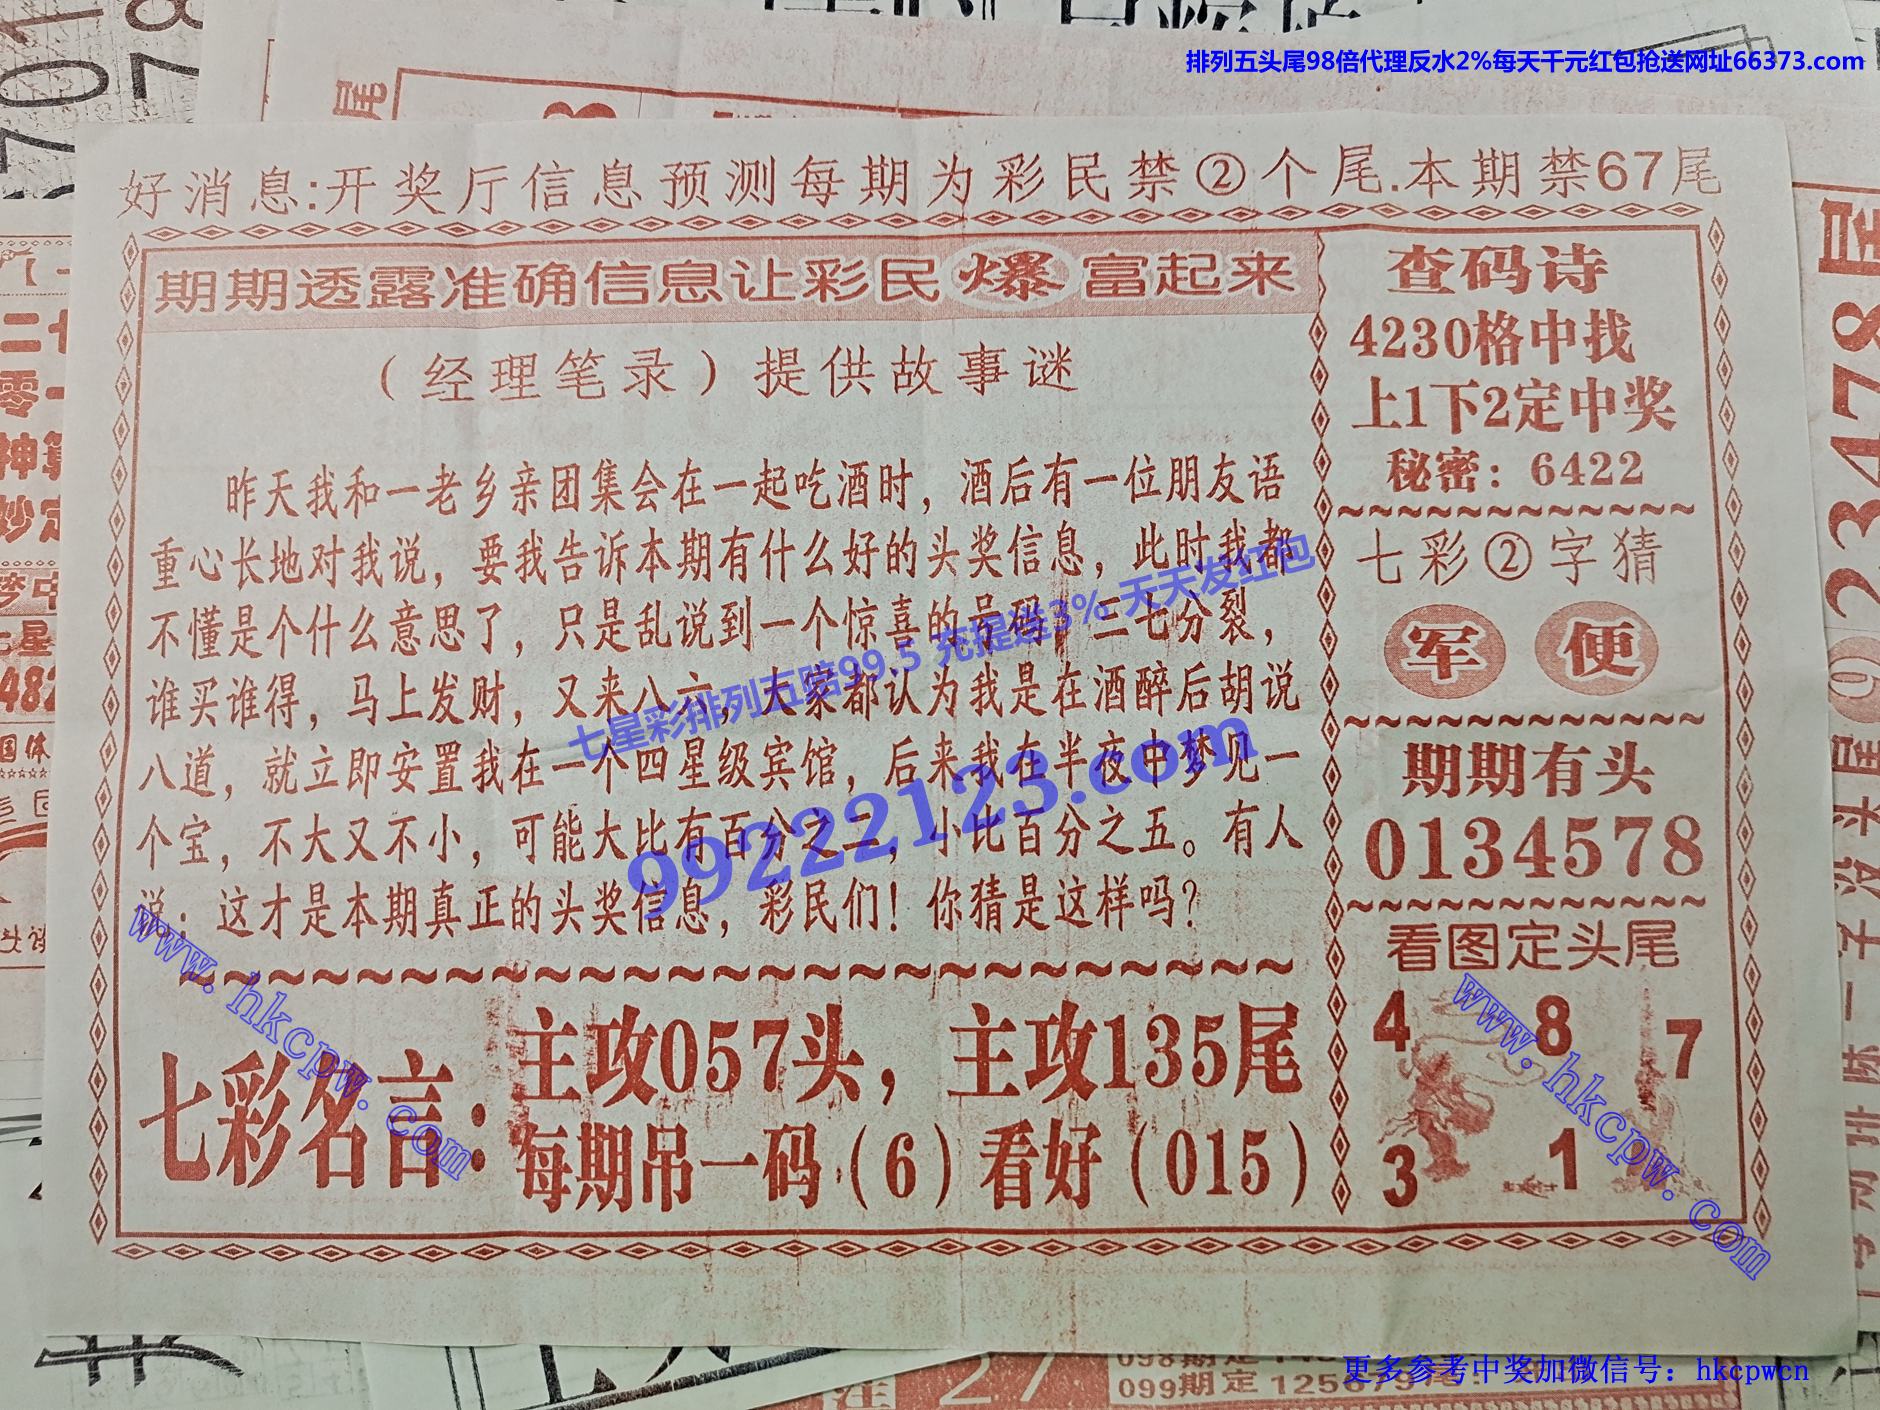 排列五头尾98倍代理反水2%每天千元红包抢送网址66373.com
好消息:开奖厅信息预测每期为彩民禁②个尾.本期禁67尾
期期透露准确信息让彩民爆富起来
（经理笔录）提供故事谜
昨天我和一老乡亲团集会在一起吃酒时，酒后有一位朋友语
重心长地对我说，要我告诉本期有什么好的头奖信息，此时我都
不懂是个什么意思了，只是乱说到一个惊喜的号码，二七分裂，
谁买谁得，马上发财，又来八六，大家都认为我是在酒醉后胡说
八道，就立即安置我在一个四星级宾馆，后来我在半夜中梦见一
个宝，不大又不小，可能大比有百分之二，小比百分之五。有人
说：这才是本期真正的头奖信息，彩民们！你猜是这样吗？
七彩名言：
主攻057头，主攻135尾
每期吊一码（6）看好（015）
查码诗
4230格中找
上1下2定中奖
秘密：6422
七彩②字猜
军 便
期期有头
0134578
看图定头尾
4 8 7
3 1
七星彩排列五赔99.5 充提送3% 天天发红包
99222123.com
www.hkcpw.com
www.hkcpw.com
更多参考中奖加微信号：hkcpwcn
923478尾
098期定
099期定125679尾